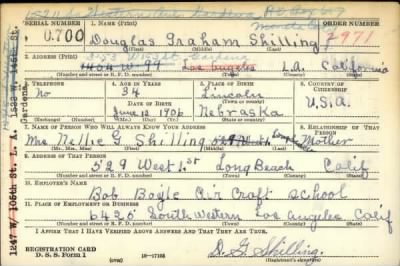 SERIAL NUMBER 1. NAME (Print) ORDER NUMBER
U.700 Douglas Graham Shilling 2971
(First) (Middle) (Last)
2. ADDRESS (Print)
1404 W-94 Los Angeles L.A. California
(Number and street or R. F. D. number) (Town) (County) (State)
3. TELEPHONE 4. AGE IN YEARS 5. PLACE OF BIRTH 6. COUNTRY OF CITIZENSHIP
No 34 Lincoln
DATE OF BIRTH (Town or county) U.S.A.
June 12 1906 Nebraska
(Mo.) (Day) (Yr.) (State or country)
7. NAME OF PERSON WHO WILL ALWAYS KNOW YOUR ADDRESS 8. RELATIONSHIP OF THAT PERSON
Mrs. Nellie G Shilling Mother
(Mr., Mrs., Miss) (First) (Middle) (Last)
9. ADDRESS OF THAT PERSON
529 West 1.st Long Beach Calif
(Number and street or R. F. D. number) (Town) (County) (State)
10. EMPLOYER'S NAME
Bob Boyle Air Craft School
11. PLACE OF EMPLOYMENT OR BUSINESS
6425 South Western Los Angeles Calif
(Number and street or R. F. D. number) (Town) (County) (State)
I AFFIRM THAT I HAVE VERIFIED ABOVE ANSWERS AND THAT THEY ARE TRUE.
REGISTRATION CARD
D. S. S. Form 1 (over) D. G. Shilling
(Registrant's signature)
1247 W. 105th St. L. A.
Gardena.